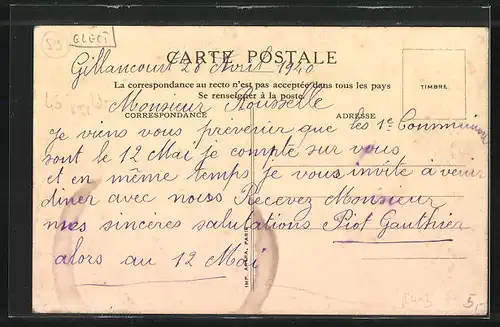 59
ELECT
CARTE POSTALE
Gillancourt 28 Avril 1940
La correspondance au recto n'est pas acceptée dans tous les pays
Se renseigner à la poste.
TIMBRE
Monsieur Rousselle
CORRESPONDANCE
ADRESSE
Je viens vous prévenir que les 1e Communions
sont le 12 Mai je compte sur vous
et en même temps je vous invite à venir
diner avec nous Recevez Monsieur
mes sincères salutations Piot Gauthier
alors au 12 Mai
IMP. PARIS